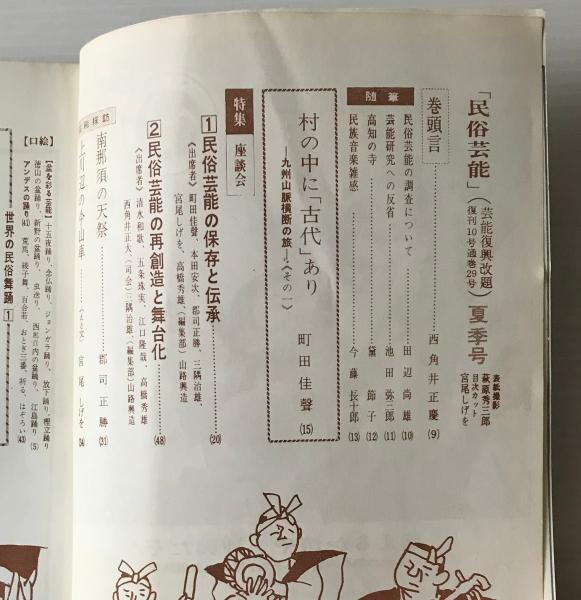 「民俗芸能」
（芸能復興改題
復刊10号通巻29号）
夏季号
表紙撮影
萩原秀三郎
目次カット
宮尾しげを
巻頭言……西角井正慶(9)
随筆
民俗芸能の調査について……田辺尚雄(10)
芸能研究への反省……池田弥三郎(11)
高知の寺……黛節子(12)
民族音楽雑感……今藤長十郎(13)
村の中に「古代」あり
―九州山脈横断の旅―〈その一〉
町田佳聲(15)
特集 座談会
1 民俗芸能の保存と伝承……(20)
〈出席者〉町田佳聲、本田安次、郡司正勝、三隅治雄、
宮尾しげを、高橋秀雄、（編集部）山路興造
2 民俗芸能の再創造と舞台化……(48)
〈出席者〉清水和歌、五条珠実、江口隆哉、高橋秀雄
西角井正大（司会）三隅治雄、（編集部）山路興造
探訪
南那須の天祭……郡司正勝(31)
川辺の今山車……（え と 文）宮尾しげを(34)
【口絵】
【盆を彩る芸能】十五夜踊り、念仏踊り、ジョンガラ踊り、放下踊り、樫立踊り
徳山の盆踊り、新野の盆踊り、虫送り、西馬音内の盆踊り、江島踊り(5)
アンデスの踊り(41)
世界の民俗舞踊1